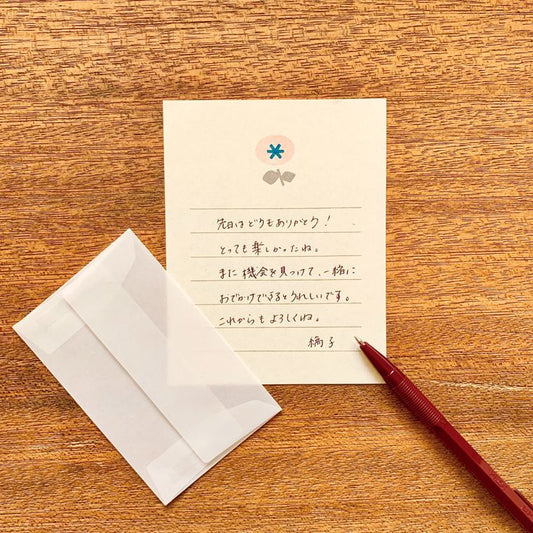 先日はどうもありがとう！
とっても楽しかったね。
また機会を見つけて、一緒に
おでかけできるとうれしいです。
これからもよろしくね。